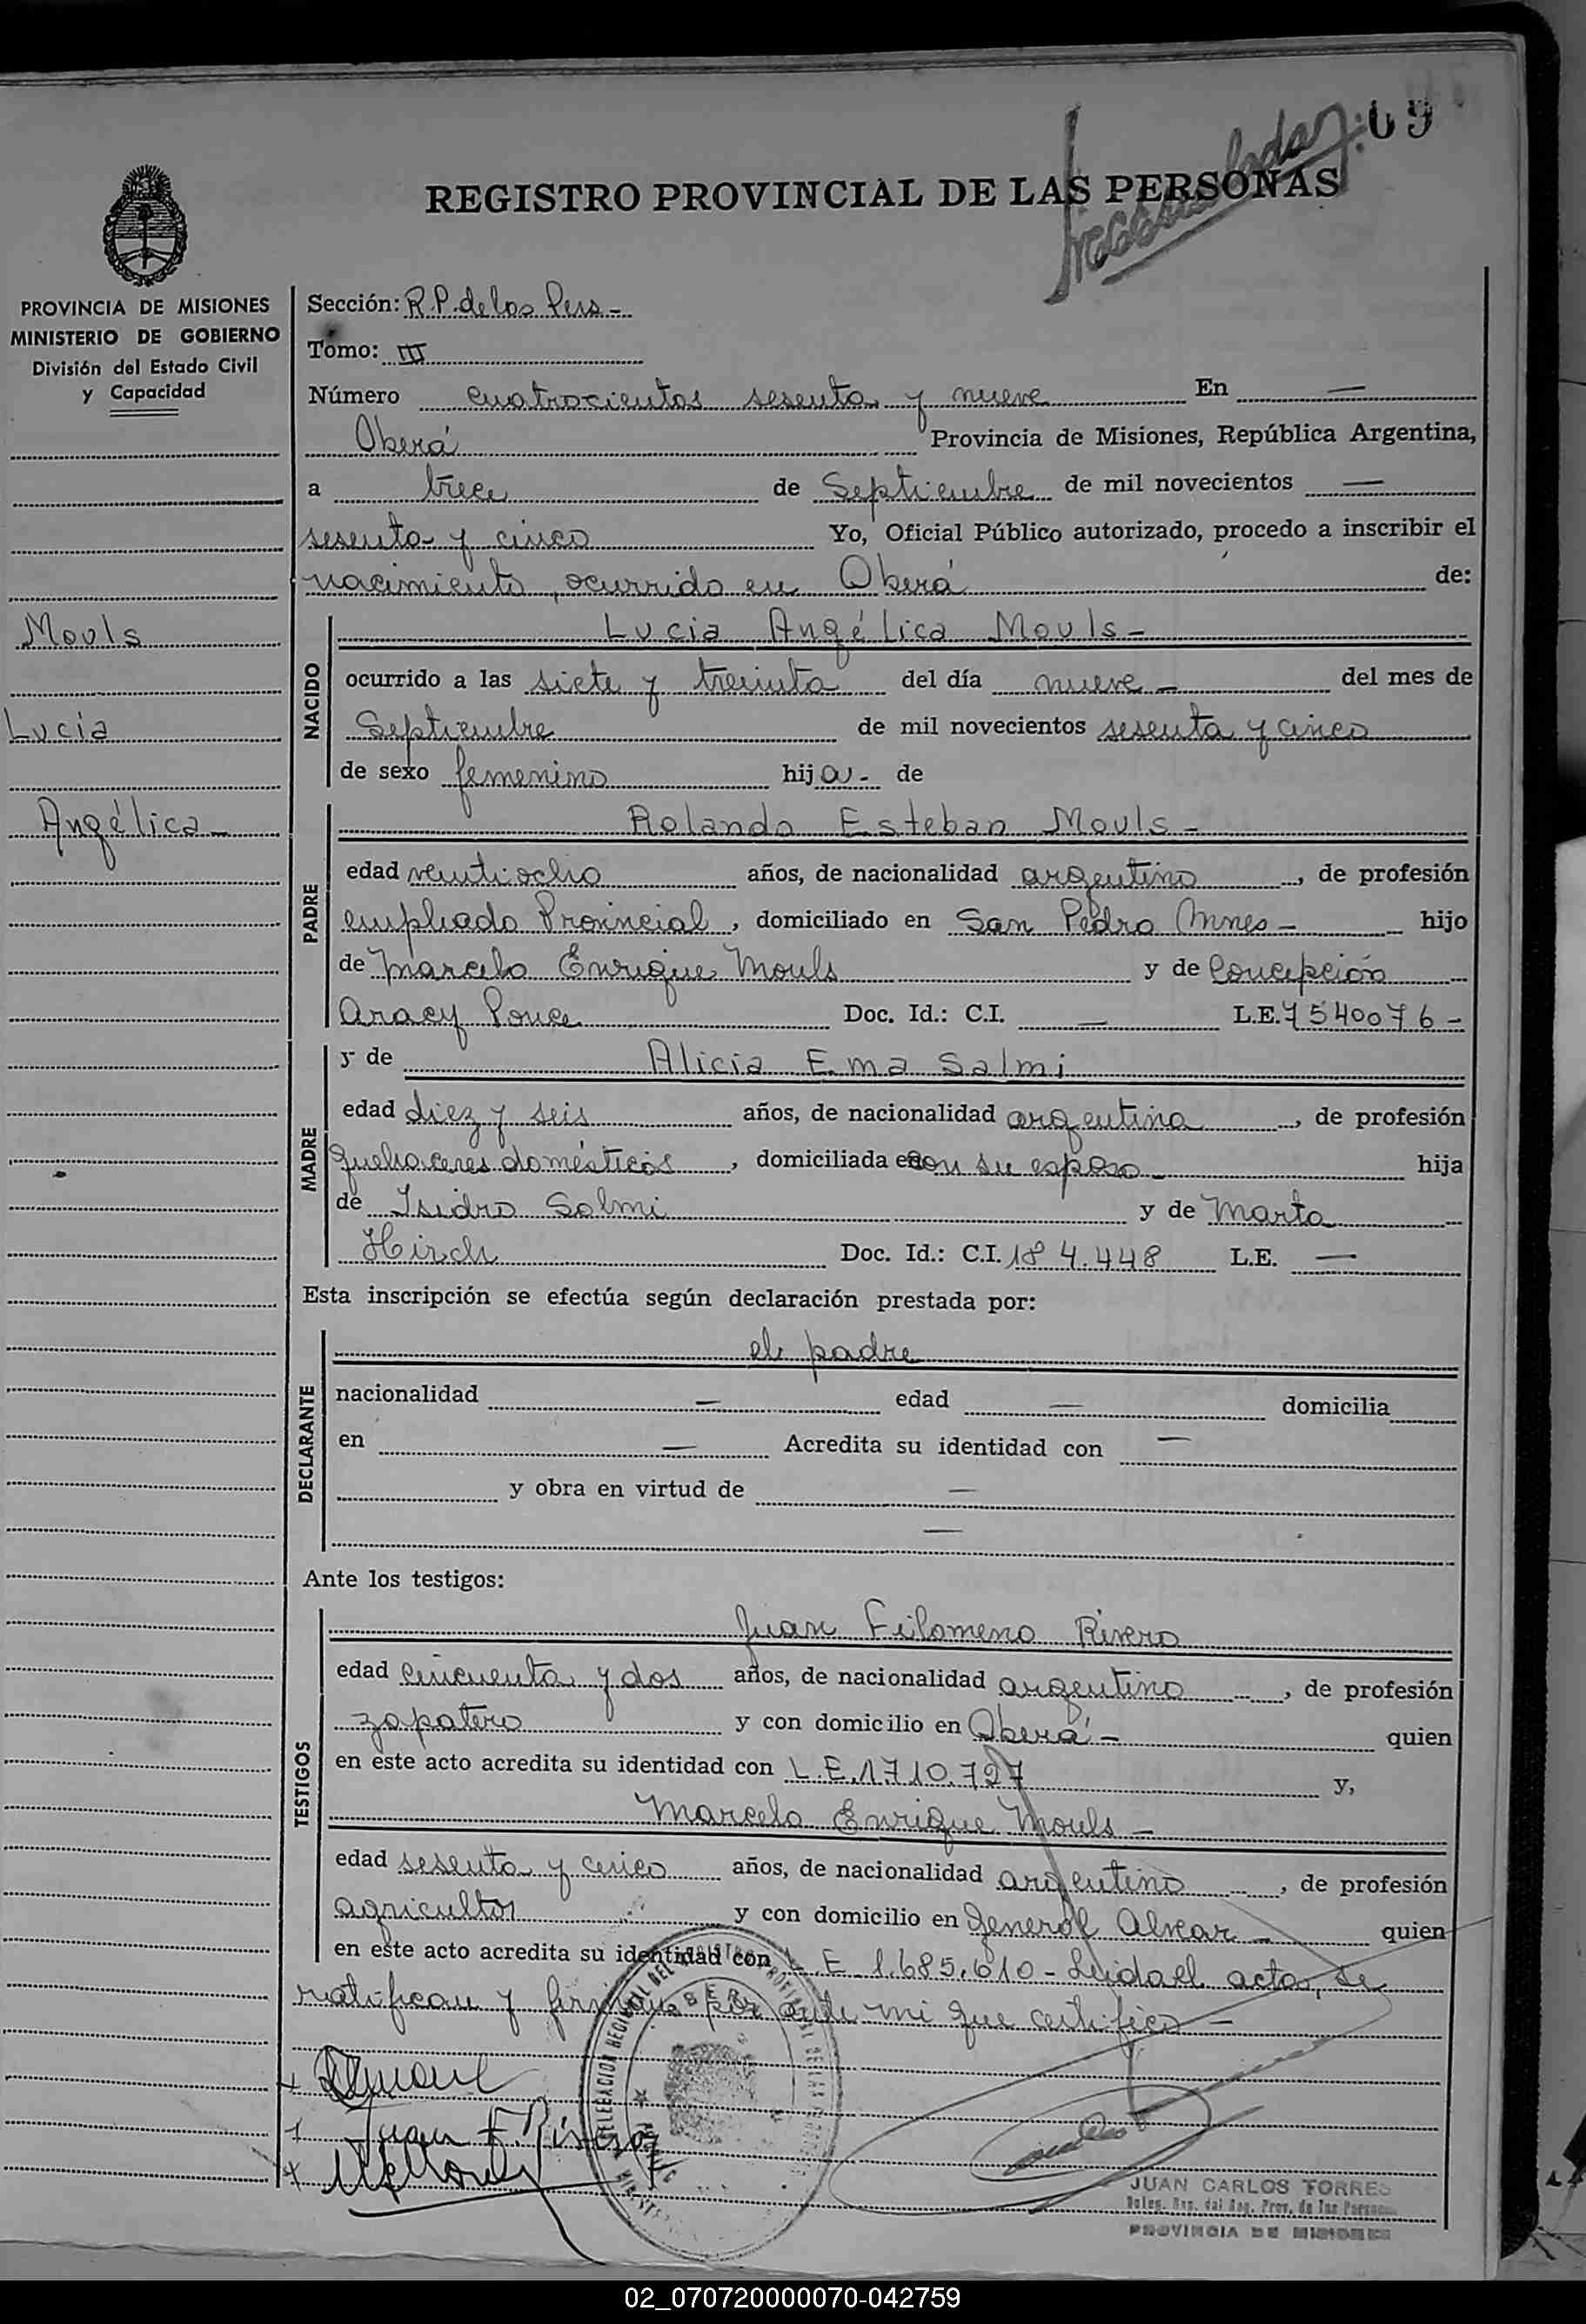 69
REGISTRO PROVINCIAL DE LAS PERSONAS
PROVINCIA DE MISIONES
MINISTERIO DE GOBIERNO
División del Estado Civil
y Capacidad
Mouls
Lucia
Angélica -
Sección: R.P. de las Pers -
Tomo: III
Número cuatrocientos sesenta y nueve En —
Oberá Provincia de Misiones, República Argentina,
a trece de Septiembre de mil novecientos —
sesenta y cinco Yo, Oficial Público autorizado, procedo a inscribir el
nacimiento, ocurrido en Oberá de:
NACIDO
Lucia Angélica Mouls -
ocurrido a las siete y treinta del día nueve - del mes de
Septiembre de mil novecientos sesenta y cinco
de sexo femenino hija - de
PADRE
Rolando Esteban Mouls -
edad veintiocho años, de nacionalidad argentino, de profesión
empleado Provincial, domiciliado en San Pedro Mnes - hijo
de Marcelo Enrique Mouls y de Concepción
Aracy Ponce Doc. Id.: C.I. — L.E. 7540076 -
MADRE
y de Alicia Ema Salmi
edad diez y seis años, de nacionalidad argentina, de profesión
quehaceres domésticos, domiciliada con su esposo - hija
de Isidro Salmi y de Marta
Hirch Doc. Id.: C.I. 184.448 L.E. —
Esta inscripción se efectúa según declaración prestada por:
DECLARANTE
el padre
nacionalidad — edad — domicilia
en — Acredita su identidad con —
y obra en virtud de —
—
Ante los testigos:
TESTIGOS
Juan Filomeno Rivero
edad cincuenta y dos años, de nacionalidad argentino, de profesión
zapatero y con domicilio en Oberá - quien
en este acto acredita su identidad con L.E. 1.710.727 y,
Marcelo Enrique Mouls -
edad sesenta y cinco años, de nacionalidad argentino, de profesión
agricultor y con domicilio en General Alvear - quien
en este acto acredita su identidad con L.E. 1.685.610 - Leida el acta, se
ratifican y firman por ante mi que certifico -
Juan F. Rivero
JUAN CARLOS TORRES
Deleg. Reg. del Reg. Prov. de las Personas
PROVINCIA DE MISIONES
02_070720000070-042759